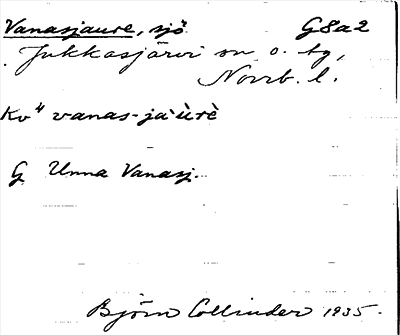 Vanasjaure, sjö G8a2
Jukkasjärvi sn o. tg,
Norrb. l.
Kv" vanas-jaùrè
G Unna Vanasj.
Björn Collinder 1935.